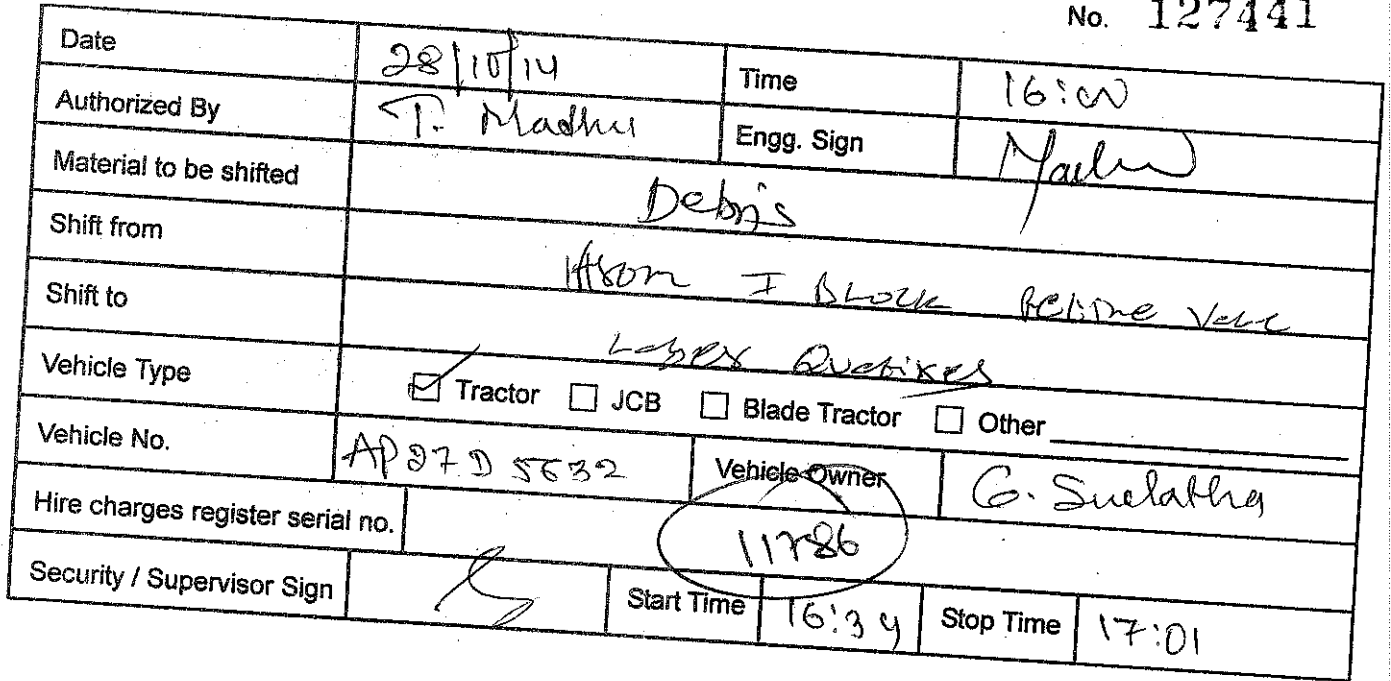 No. 127441
Date 28/10/14 Time 16:00
Authorized By T. Madhu Engg. Sign Madhu
Material to be shifted Debris
Shift from I Block
Shift to
Vehicle Type Tractor JCB Blade Tractor Other
Vehicle No. AP27D 5632 Vehicle Owner G. Suelatha
Hire charges register serial no. 11786
Security / Supervisor Sign Start Time 16:34 Stop Time 17:01